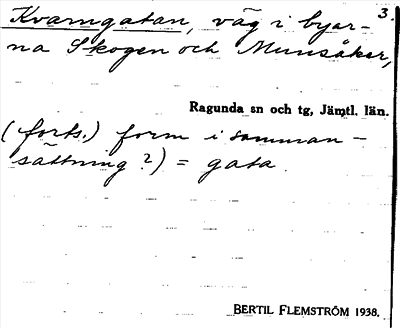 3.
Kvarngatan, väg i byar-
na Skogen och Munsåker,
Ragunda sn och tg, Jämtl. län.
(forts.) form i samman-
sättning?) = gata.
BERTIL FLEMSTRÖM 1938.